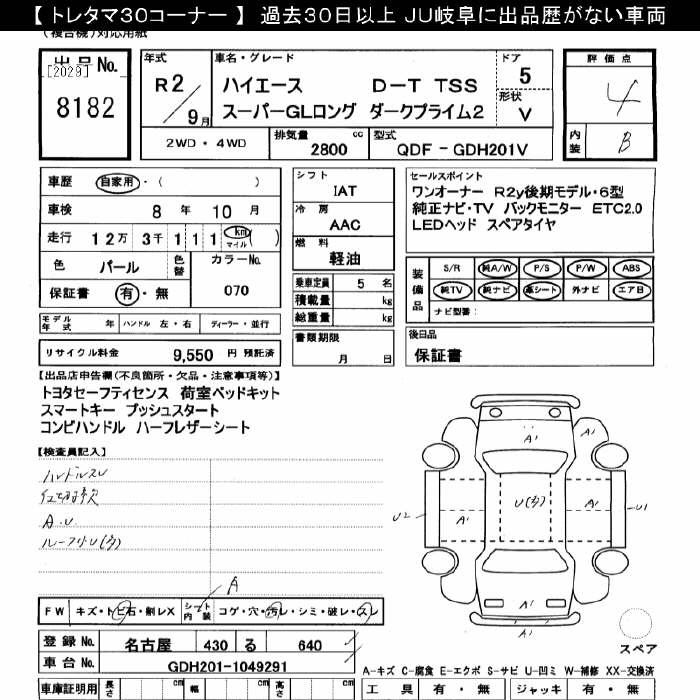 【 トレタマ30コーナー 】 過去30日以上 JU岐阜に出品歴がない車両
(複合機)対応用紙
出品No.
[2029]
8182
年式
R2/9月
車名・グレード
ハイエース D-T TSS
スーパーGLロング ダークプライム2
ドア
5
形状
V
評価点
4
内装
B
2WD・4WD
排気量 cc
2800
型式
QDF-GDH201V
車歴 自家用・( )
車検 8年 10月
走行 12万 3千 1 1 1 km マイル ( )
色 パール 色替
カラーNo.
070
保証書 有・無
シフト
IAT
冷房
AAC
燃料
軽油
乗車定員 5 名
積載量 kg
総重量 kg
セールスポイント
ワンオーナー R2y後期モデル・6型
純正ナビ・TV バックモニター ETC2.0
LEDヘッド スペアタイヤ
装備品
S/R 純A/W P/S P/W ABS
純TV 純ナビ 革シート 外ナビ エアB
ナビ型番:
モデル年式 年 ハンドル 左・右 ディーラー・並行
リサイクル料金 9,550 円 預託済
書類期限
月 日
後日品
保証書
【出品店申告欄(不良箇所・欠品・注意事項等)】
トヨタセーフティセンス 荷室ベッドキット
スマートキー プッシュスタート
コンビハンドル ハーフレザーシート
【検査員記入】
ハンドルスレ
A.U
ルーフ小U(多)
A
A1
A1
U(多)
U2
A1
A1
U1
A1
A1
スペア
FW キズ・トビ石・削レX シート内装 コゲ・穴・汚レ・シミ・破レ・スレ
登録No. 名古屋 430 る 640
車台No. GDH201-1049291
A-キズ C-腐食 E-エクボ S-サビ U-凹ミ W-補修 XX-交換済
車庫証明用 長さ cm 幅 cm 高さ cm
工具 有・無 ジャッキ 有・無